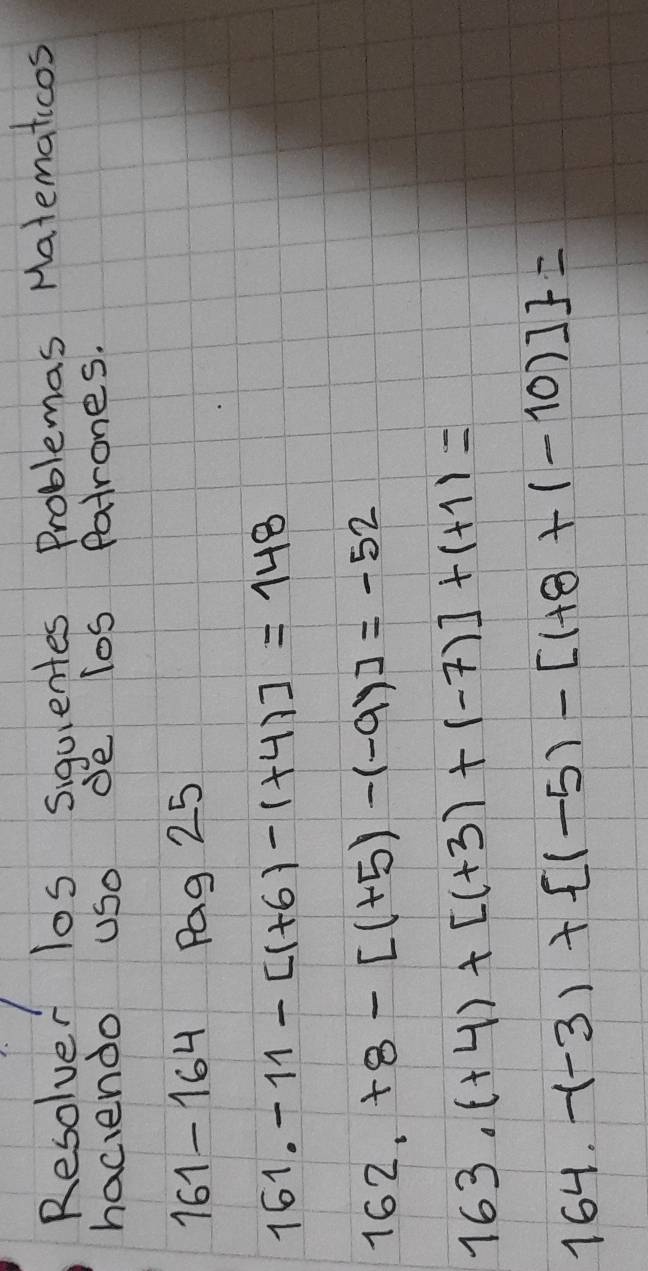 Resolver los siguientes Problemas Matematicos
haciendo uso de los Patrones.
161-164 Pag 25
161. -11-[(+6)-(+4)] = 148
162. +8-[(+5)-(-9)] = -52
163. (+4)+[(+3)+(-7)]+(+1) =
164. -(-3)+{(-5)-[(+8+(-10)]} =